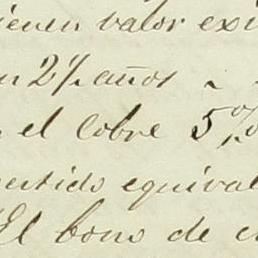 ienen valor exi
n 2½ años
el cobre 5%
ertido equival
El bono de c